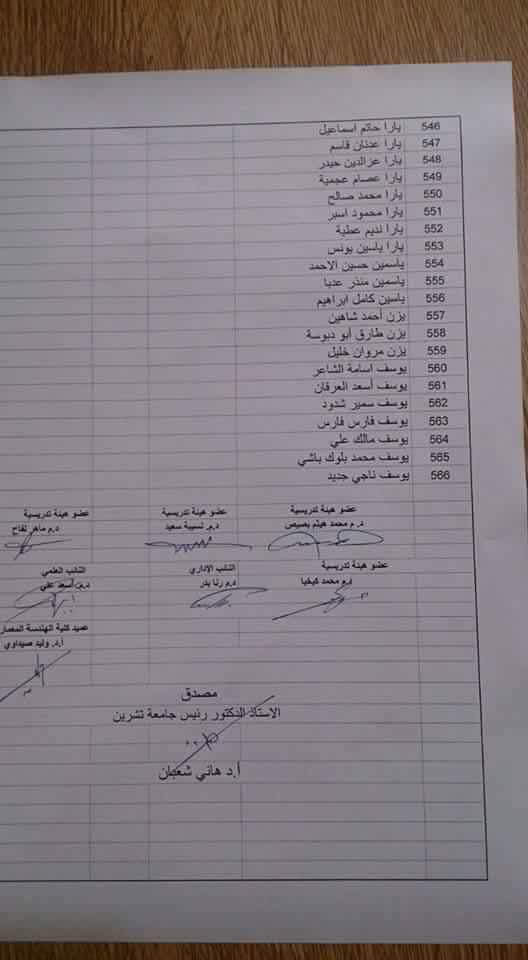 546 يارا حاتم اسماعيل
547 يارا عدنان قاسم
548 يارا عزالدين حيدر
549 يارا عصام عجمية
550 يارا محمد صالح
551 يارا محمود اسبر
552 يارا نديم عطية
553 يارا ياسين يونس
554 ياسمين حسين الاحمد
555 ياسمين منذر عدبا
556 ياسين كامل ابراهيم
557 يزن أحمد شاهين
558 يزن طارق أبو دبوسة
559 يزن مروان خليل
560 يوسف اسامة الشاعر
561 يوسف أسعد العرفان
562 يوسف سمير شدود
563 يوسف فارس فارس
564 يوسف مالك علي
565 يوسف محمد بلوك باشي
566 يوسف ناجي جديد
عضو هيئة تدريسية عضو هيئة تدريسية عضو هيئة تدريسية
د.م محمد هيثم بصيص د.م. نسيبة سعيد د.م ماهر لفاح
عضو هيئة تدريسية النائب الإداري النائب العلمي
د.م محمد كيخيا د.م رنا بدر أسعد علي
عميد كلية الهندسة المعمار
أ.د. وليد صيداوي
مصدق
الاستاذ الدكتور رئيس جامعة تشرين
أ.د هاني شعبان